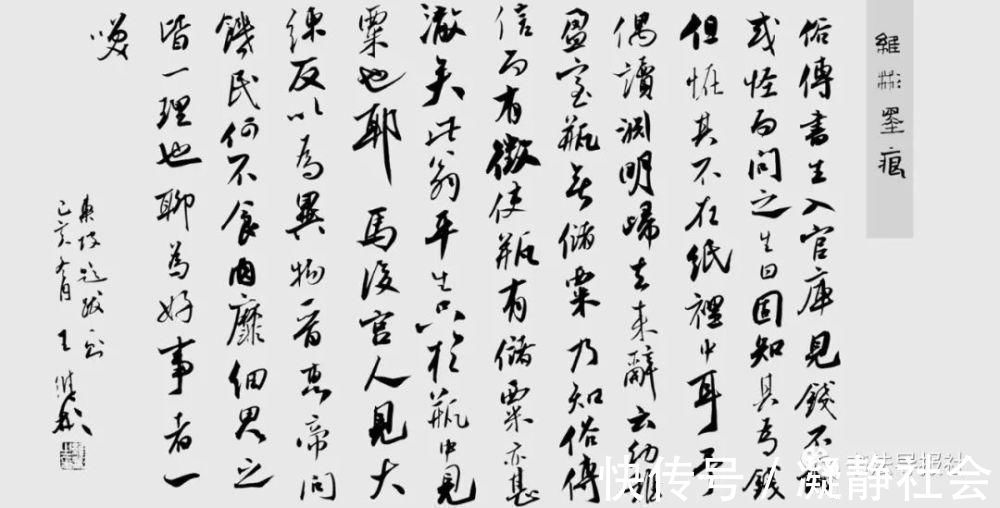 維彬墨痕
俗傳書生入官庫見錢不
或怪而問之生曰固知其為錢
但恠其不在紙裡中耳予
偶讀淵明歸去來辭云幼稚
盈室瓶無儲粟乃知俗傳
信而有徵使瓶有儲粟亦甚
矣此翁平生只於瓶中見
粟也耶 馬後宮人見大
練反以為異物晉惠帝問
饑民何不食肉靡細思之
皆一理也聊為好事者一
笑
東坡題跋句
己亥 月 王維彬
书法导报社
快传号/凝静社会